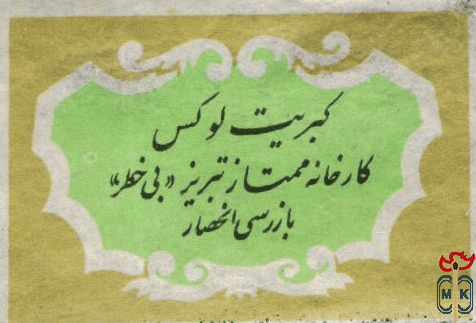 کبریت لوکس
کارخانه ممتاز تبریز «بی خطر»
بازرسی انحصار
M K